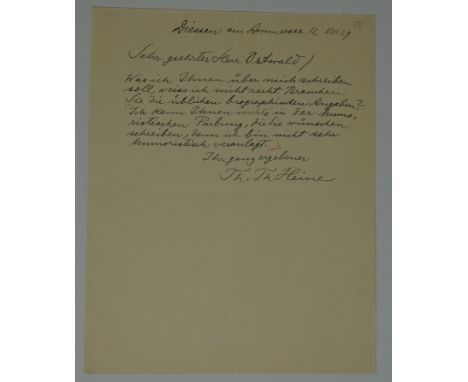 Diessen am Ammersee 12. Nov 29
Sehr geehrter Herr Ostwald!
Was ich Ihnen über mich schreiben
soll, weiss ich nicht recht. Brauchen
Sie die üblichen biographischen Angaben?
Ich kann Ihnen nichts in der humo-
ristischen Färbung, die Sie wünschen,
schreiben, denn ich bin nicht sehr
humoristisch veranlagt.
Ihr ganz ergebener
Th. Th. Heine